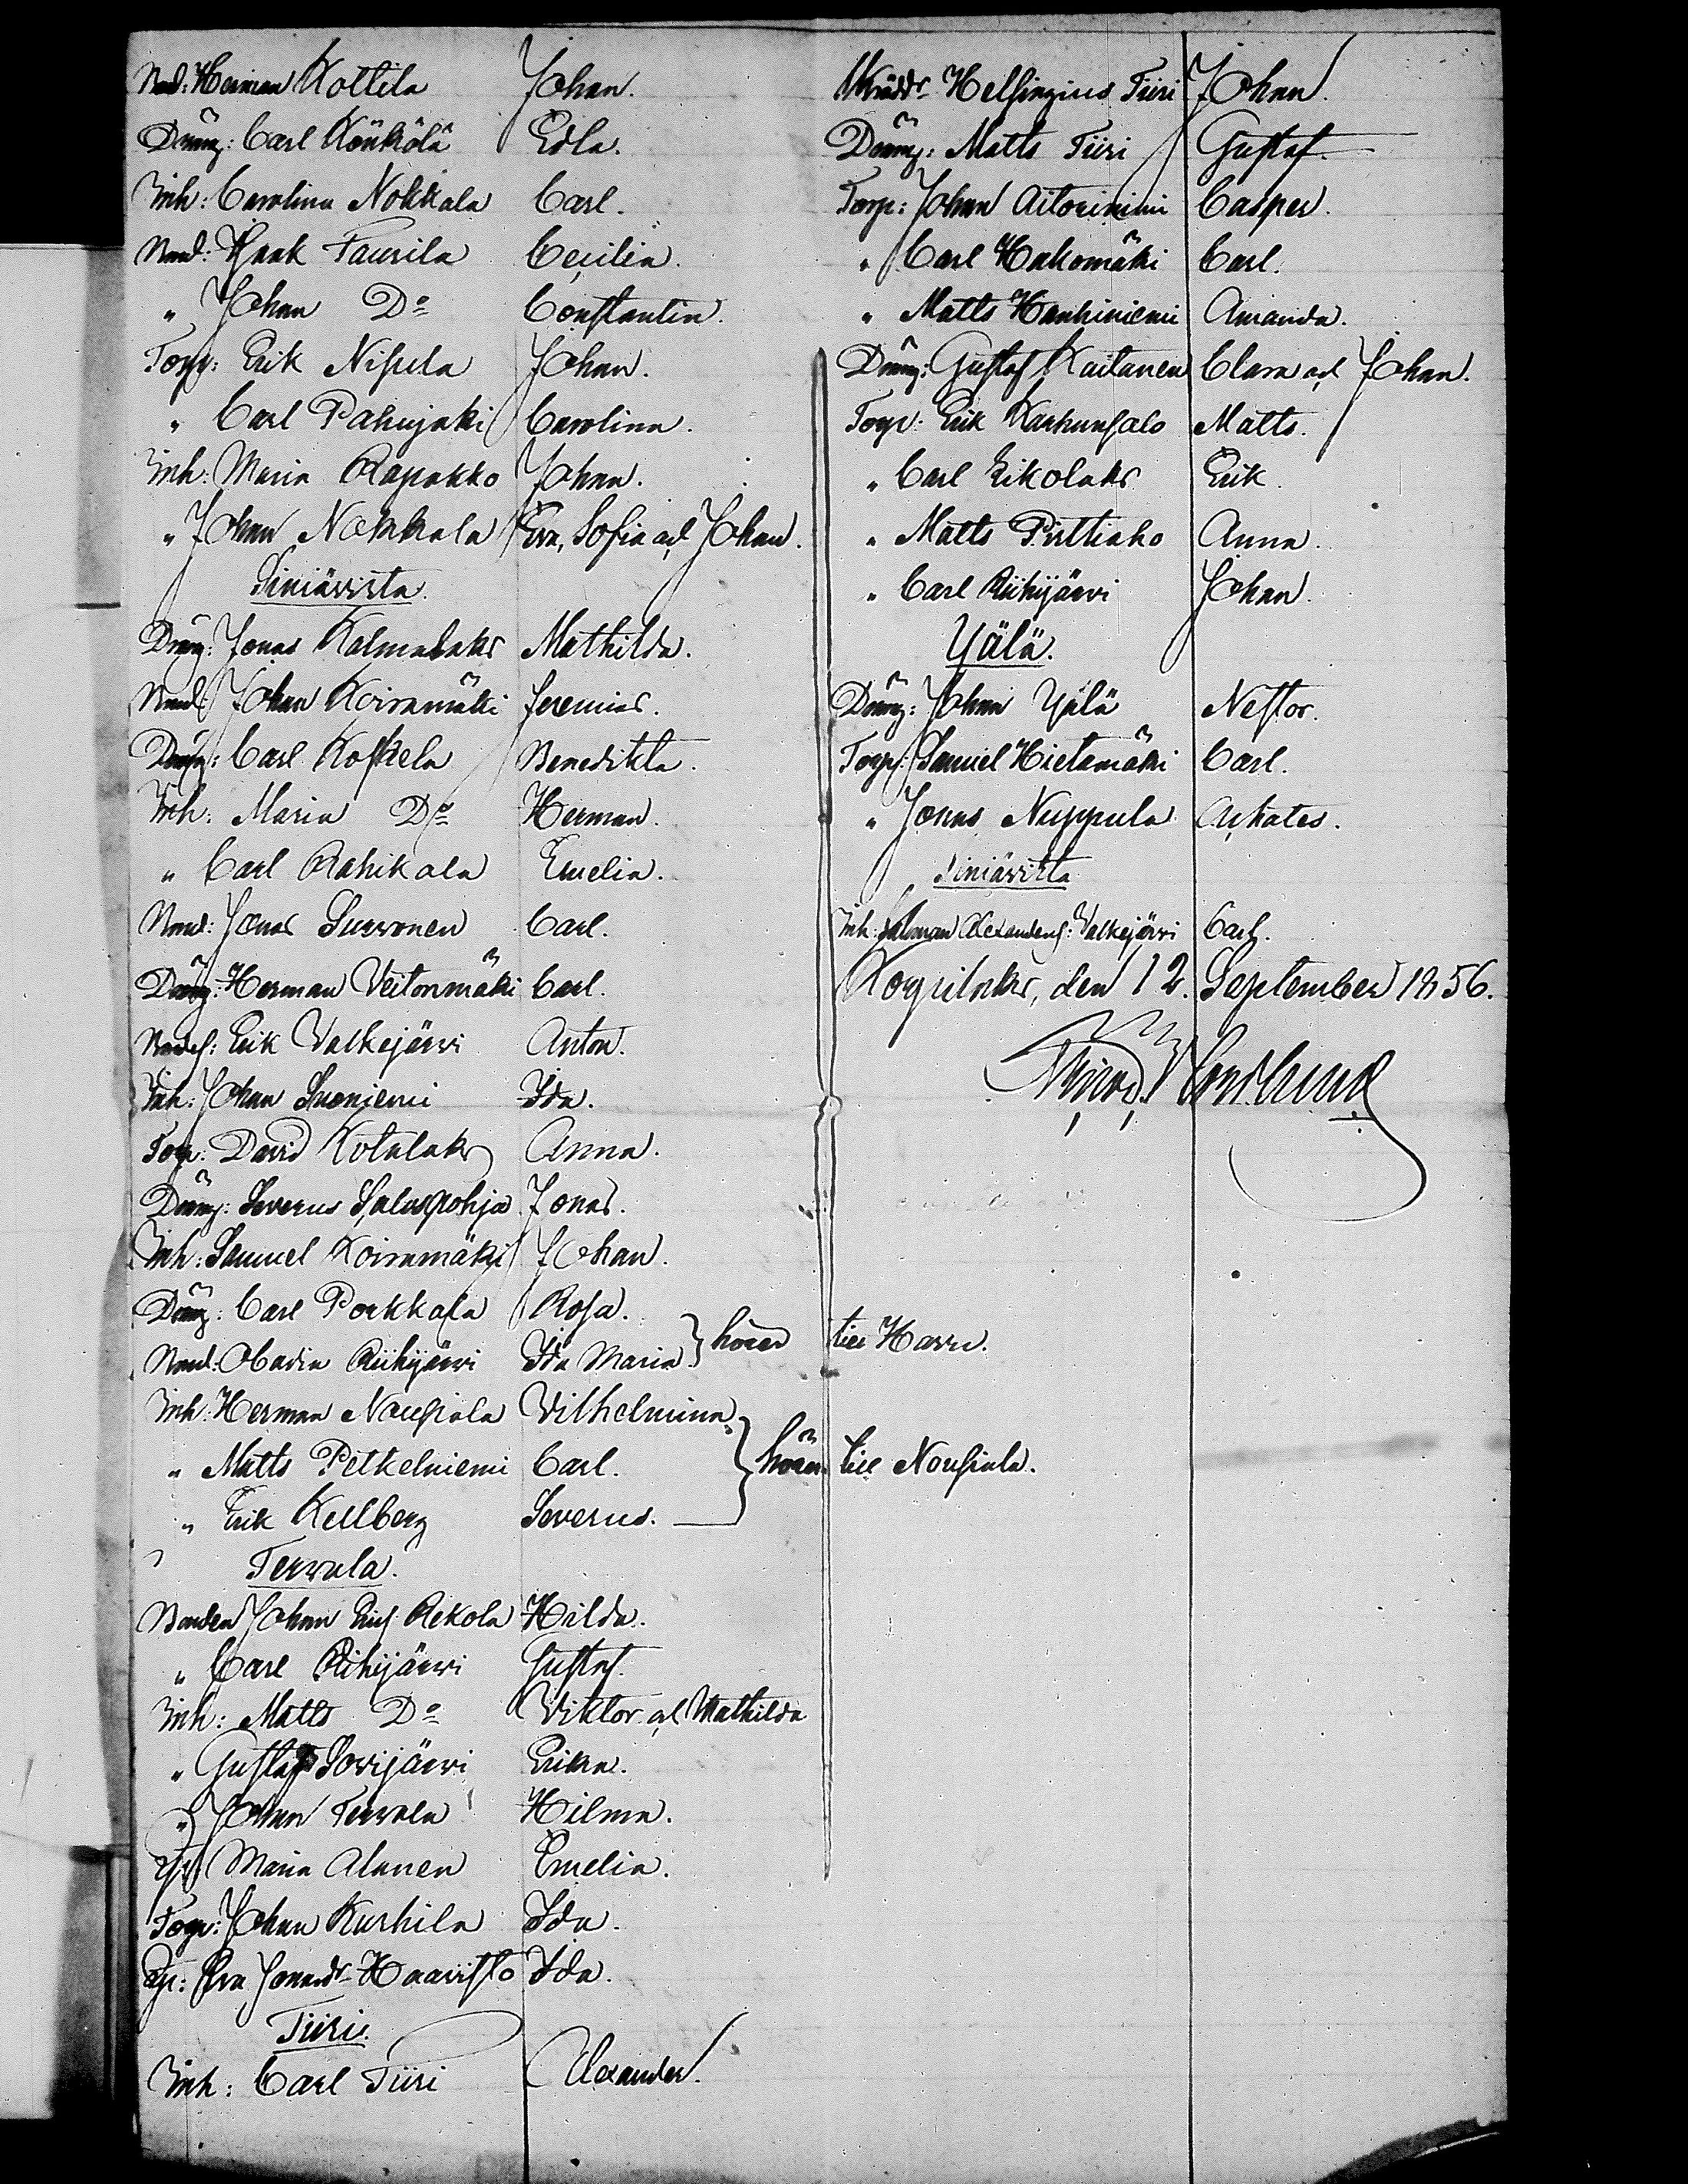 Bond: Herman Kottila Johan.
Dräng: Carl Könkölä Edla.
Inh: Carolina Nokkala Carl.
Bond: Isaak Taurila Cecilia.
" Johan Do Constantin.
Torp: Erik Nisula Johan.
" Carl Pahujoki Carolina.
Inh: Maria Rapakko Johan.
" Johan Nokkala Eva, Sofia och Johan.
Siniärista.
Dräng: Jonas Kalmalaks Mathilda.
Bond: Johan Koiramäki Jeremias.
Dräng: Carl Koskela Benedikta.
Inh: Maria Do Herman.
" Carl Rahikala Emelia.
Bond: Jonas Survonen Carl.
Dräng: Herman Veitonmäki Carl.
Bondes: Erik Valkejärvi Anton.
Inh: Johan Suoniemi Ida.
Torp: David Kotalaks Anna.
Dräng: Severus Saluspohja Jonas.
Inh: Samuel Koiramäki Johan.
Dräng: Carl Porkkala Rosa.
Bond: Obadia Riihijärvi Ida Maria } hörer till Harru.
Inh: Herman Nousiala Vilhelmina
" Matts Petkelniemi Carl. } hörer till Nousiala.
" Erik Kellberg Severus.
Tervala.
Bonden Johan Eriks Rekola Hilda.
" Carl Riihijärvi Gustaf.
Inh: Matts Do Viktor och Mathilda
" Gustaf Sovijärvi Erika.
" Johan Tervala Hilma.
Maria Alanen Emelia.
Torp: Johan Kurhila Ida.
Eva Jonasdr Haavisto Ida.
Tiiri.
Inh: Carl Tiiri Alexander.
Helsingius Tiiri Johan.
Dräng: Matts Tiiri Gustaf.
Torp: Johan Aitoniemi Casper.
" Carl Hakomäki Carl.
" Matts Hanhiniemi Amanda.
Dräng: Gustaf Kaitanen Clara och Johan.
Torp: Erik Karhunsalo Matts.
" Carl Eikolaks Erik
" Matts Pirttiaho Anna.
" Carl Riihijärvi Johan.
Yälä.
Dräng: Johan Yälä Nestor.
Torp: Samuel Hietamäki Carl.
" Jonas Nuppula Achates.
Siniärista
Inh: Salomon Alexanders: Valkejärvi Carl.
Korpilaks, den 12. September 1856.